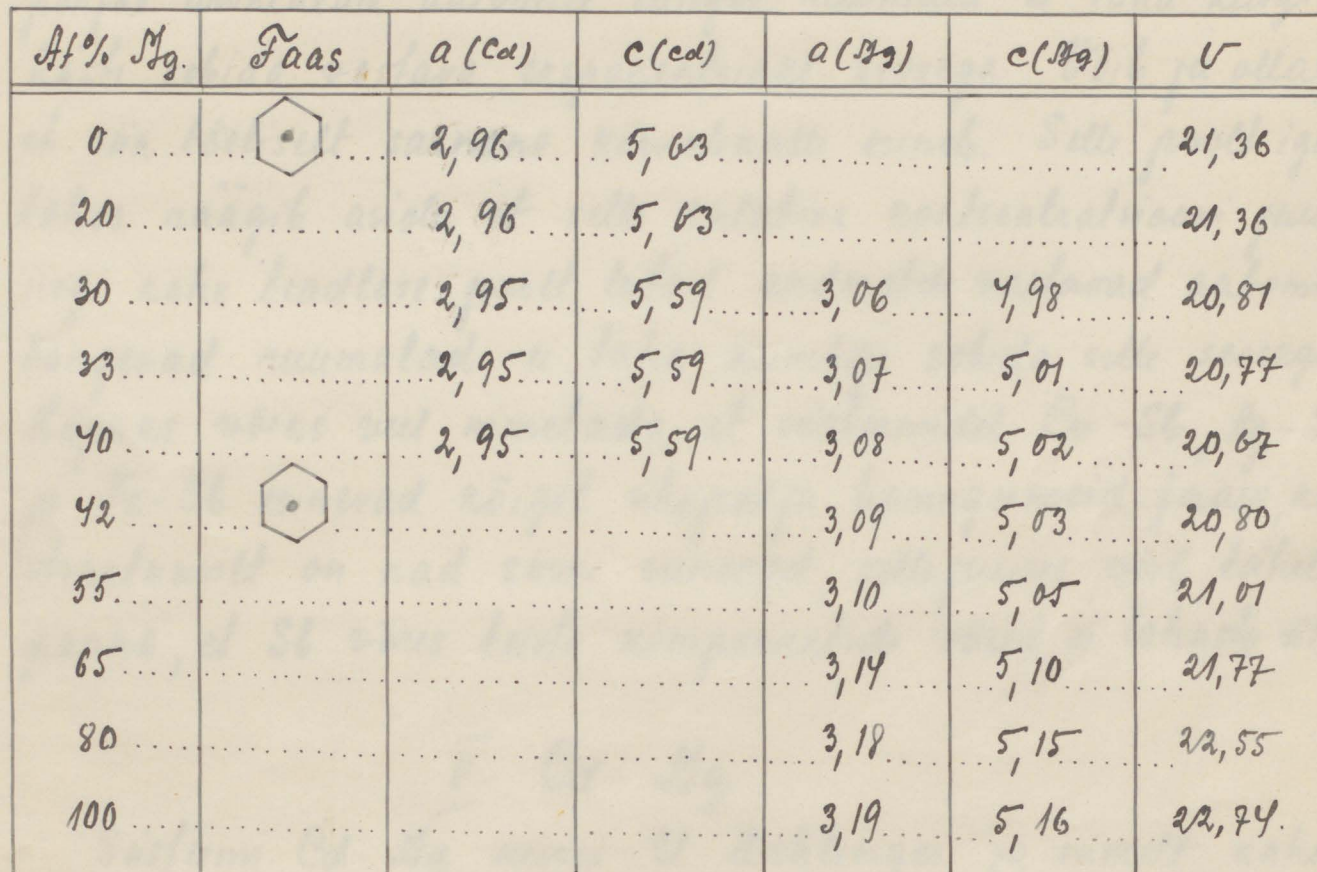 At% Mg. Faas a (Cd) c (cd) a (Mg) c (Mg) V
0 2,96 5,63 21,36
20 2,96 5,63 21,36
30 2,95 5,59 3,06 4,98 20,81
33 2,95 5,59 3,07 5,01 20,77
40 2,95 5,59 3,08 5,02 20,67
42 3,09 5,03 20,80
55 3,10 5,05 21,01
65 3,14 5,10 21,77
80 3,18 5,15 22,55
100 3,19 5,16 22,74.